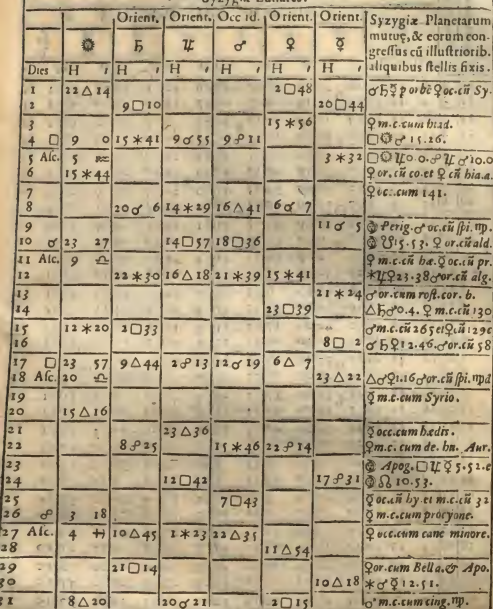 Syzygiæ Lunares.
Orient. Orient. Occid. Orient. Orient. Syzygiæ Planetarum
☼ ♄ ♃ ♂ ♀ ☿ mutuę, & eorum con-
gressus cū illustriorib.
Dies H ′ H ′ H ′ H ′ H ′ H ′ aliquibus stellis fixis.
1 22△14 2□48 ♂♄☿ ♀oc.cū Sy-
2 9□10 20□44
3 15✶56 ♀m.c.cum
4 □ 9 0 15✶41 9☌55 9☍11 □☼♂ 15.26.
5 Asc. 5 ♒ 3✶32
6 15✶44 ♀or.cū
7 ♀occ.cum 141.
8 20☌ 6 14✶29 16△41 6☌ 7
9 11☌ 5 Perig. ♂oc.cū spi. ♍.
10 ☌ 23 27 14□57 18□36 ☋15.53. ♀or.cū ald.
11 Asc. 9 ♎ ♀m.c.cū ☿oc.cū
12 22✶30 16△18 21✶39 15✶41 ✶♃♀23.38 ♂or.cū alg.
13 21✶24 ♂or.cum rost.cor. b.
14 23□39 △♄♂0.4. ♀m.c.cū 130
15 12✶20 2□33 ♂m.c.cū 265 et ♀.cū 129
16 8□ 2 ☌♄♀12.46. ♂or.cū 58
17 □ 23 57 9△44 2☍13 12☌19 6△ 7
18 Asc. 20 ♎ 23△22 △♂♀1.16 ♂or.cū spi.
19 ☿m.c.cum Syrio.
20 15△16
21 23△36 ☿occ.cum hædis.
22 8☍25 15✶46 22☍14 ♀m.c. cum de. hu. Aur.
23 Apog. □♃☿5.52.
24 12□42 17☍31 ☊ 10.53.
25 7□43 ☿oc.cū hy. et m.c.cū 32
26 ☍ 3 18 ☿m.c.cum procyone.
27 Asc. 4 ♓ 10△45 1✶23 22△35 ♀occ.cum cane minore.
28 11△54
29 21□14 ♀or.cum Bella. & Apo.
30 10△18 ✶♂☿12.51.
31 8△20 20☌21 2□15 ♂m.c.cum cing. ♍.